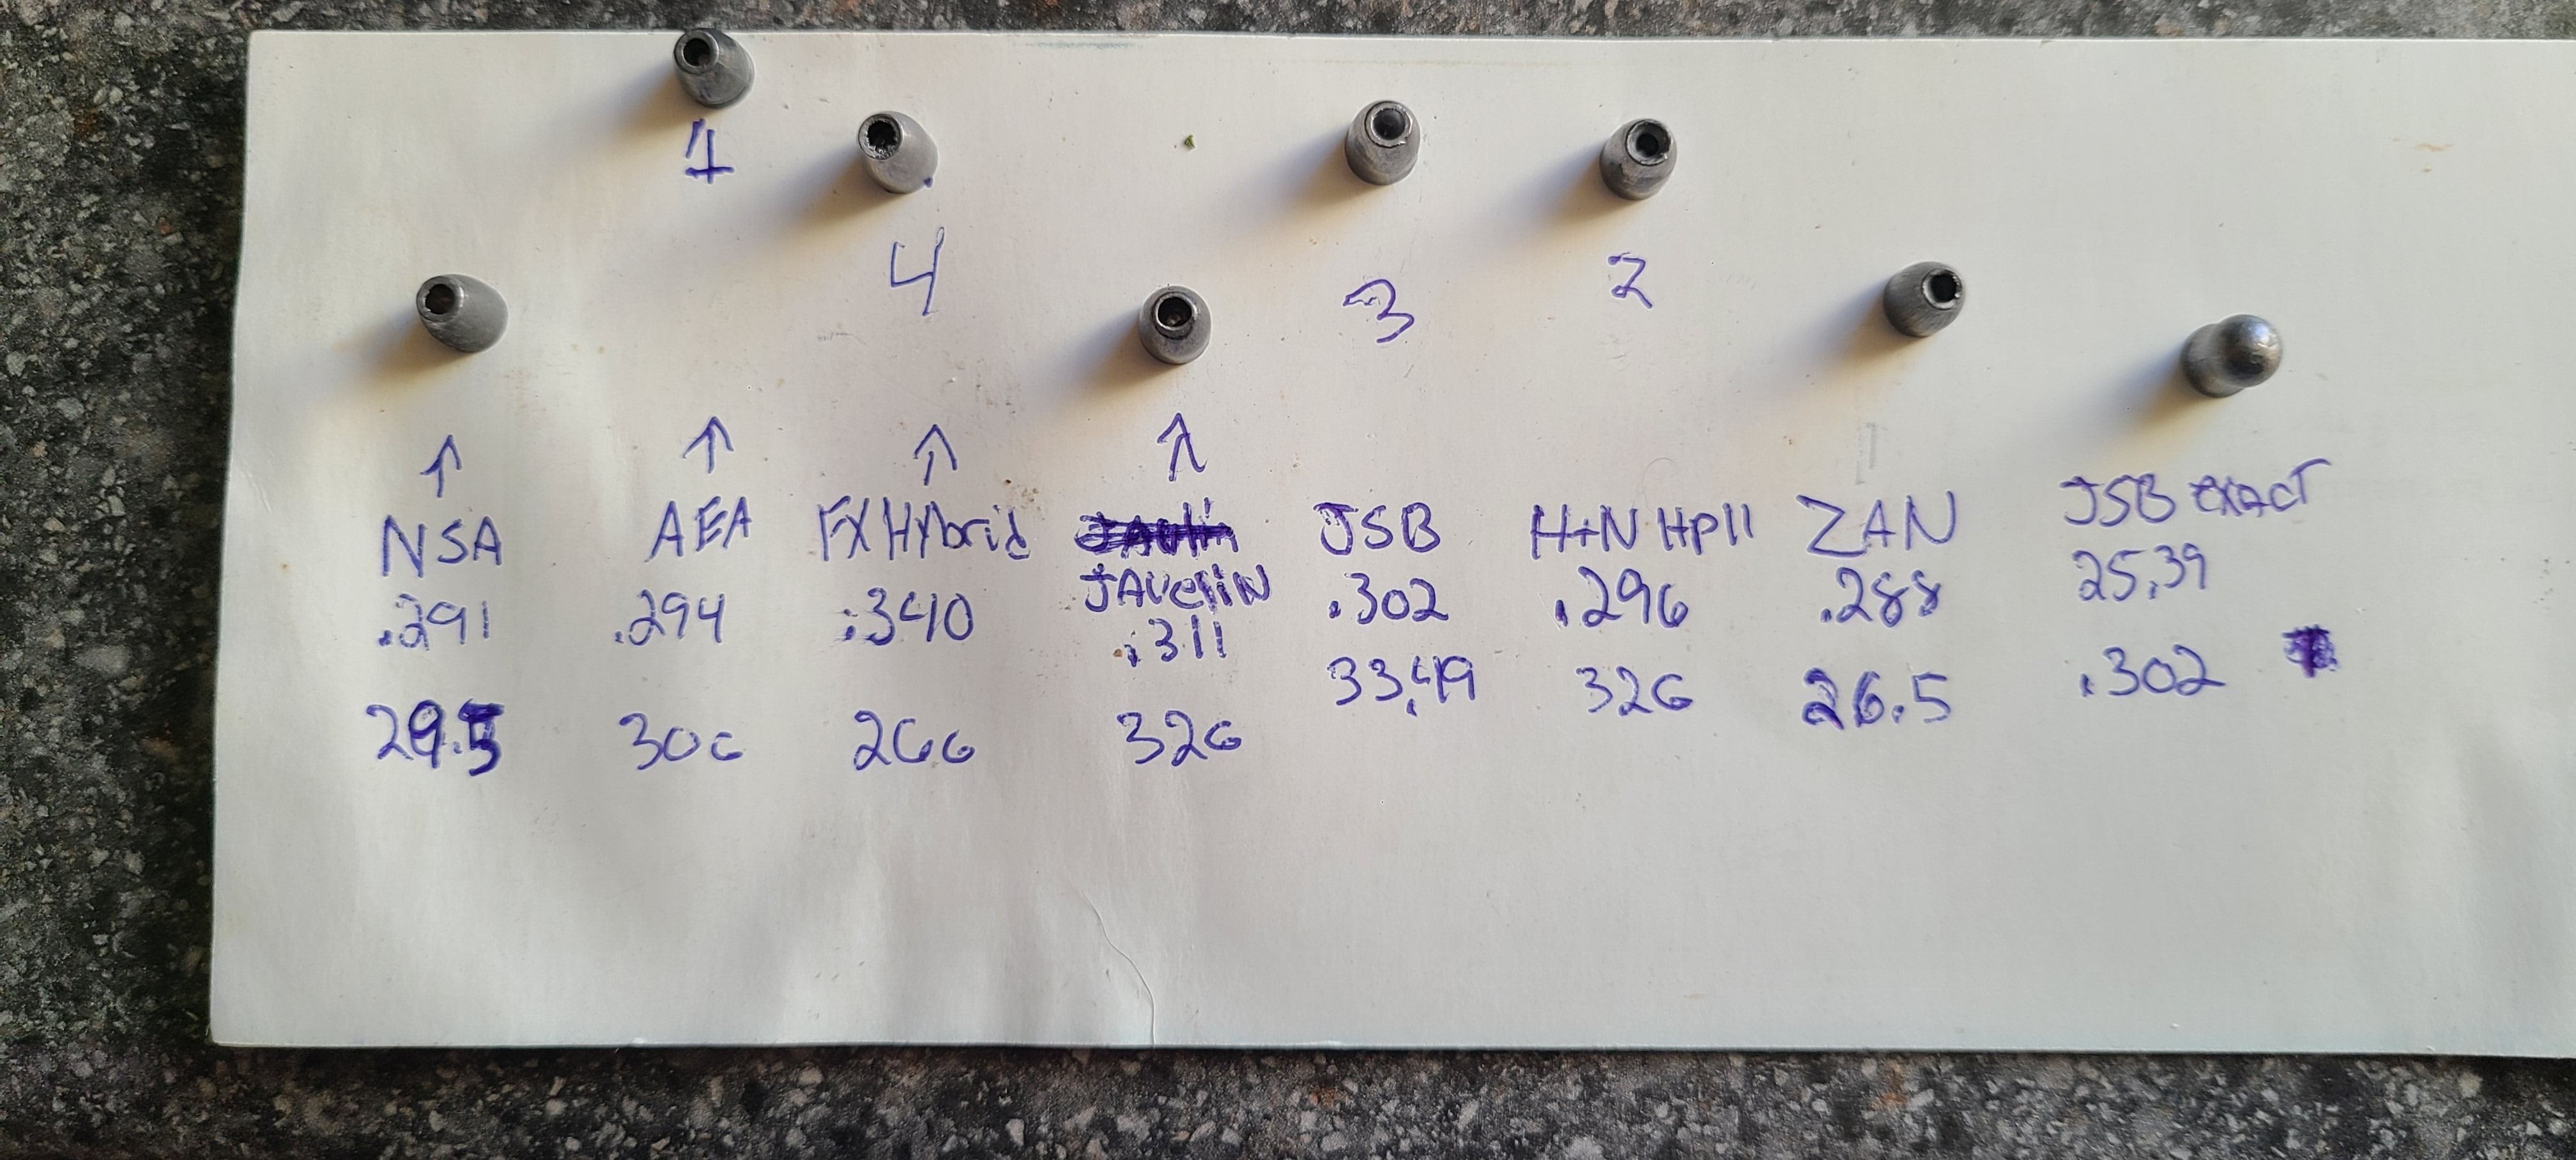 1
4
3
2
NSA
AEA
FX Hybrid
JAVeliN
JSB
H+N HPII
ZAN
JSB exact
.291
.294
.340
.311
.302
.296
.288
25.39
29.5
30G
26G
32G
33.49
32G
26.5
.302